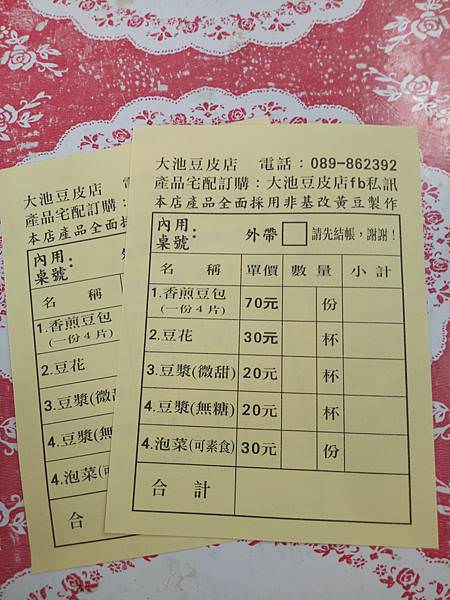 大池豆皮店 電話：089-862392
產品宅配訂購：大池豆皮店fb私訊
本店產品全面採用非基改黃豆製作
內用： 桌號 外帶 請先結帳，謝謝！
名 稱 單價 數 量 小 計
1.香煎豆包 (一份4片) 70元 份
2.豆花 30元 杯
3.豆漿(微甜) 20元 杯
4.豆漿(無糖) 20元 杯
4.泡菜(可素食) 30元 份
合 計
大池豆皮店
產品宅配訂購：
本店產品全面採
內用： 桌號
名 稱
1.香煎豆包 (一份4片)
2.豆花
3.豆漿(微甜
4.豆漿(無
4.泡菜(可
合